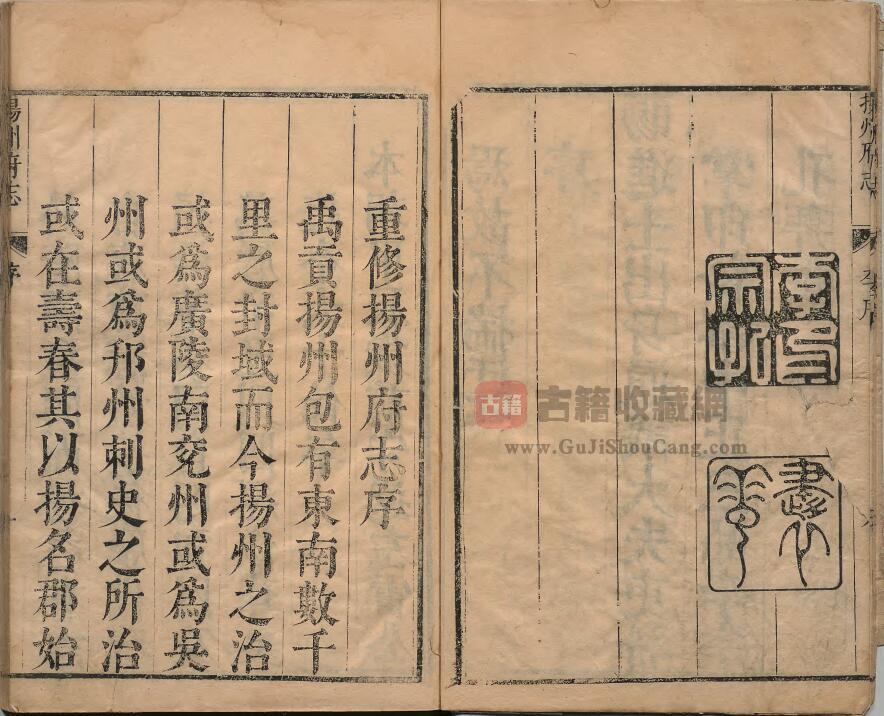 重修揚州府志序
禹貢揚州包有東南數千
里之封域而今揚州之治
或為廣陵南兗州或為吳
州或為邗州刺史之所治
或在壽春其以揚名郡始
揚州府志
序
一
揚州府志
古籍
古籍收藏網
www.GuJiShouCang.com